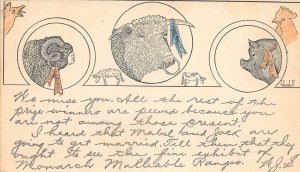 We miss you. All the rest of the
prize winners are peeved because you
are not among those present.
I heard that Mabel and Jack are
going to get married. Tell them that they
ought to see the fine exhibit of
Monarch Malleable Ranges.